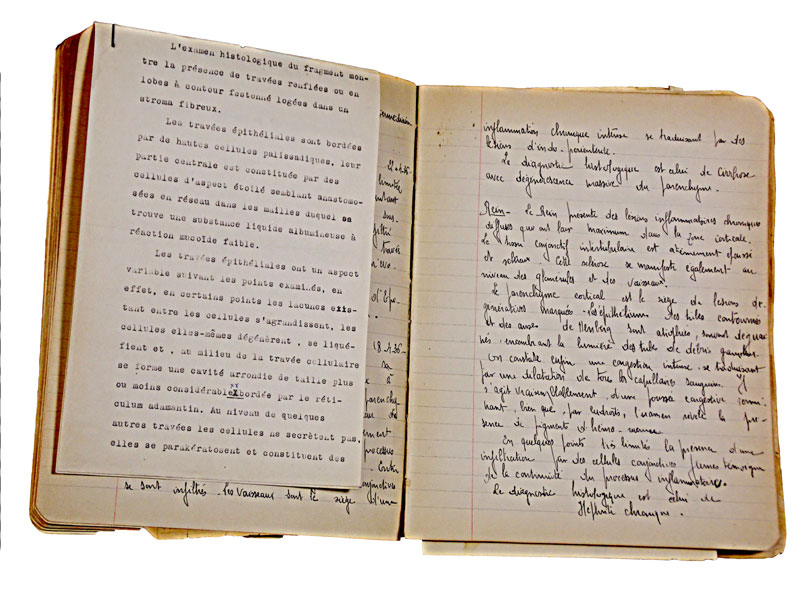 L'examen histologique du fragment mon-
tre la présence de travées renflées ou en
lobes à contour festonné logées dans un
stroma fibreux.
Les travées épithéliales sont bordées
par de hautes cellules palissadiques, leur
partie centrale est constituée par des
cellules d'aspect étoilé semblant anastomo-
sées en réseau dans les mailles duquel se
trouve une substance liquide albumineuse à
réaction mucoïde faible.
Les travées épithéliales ont un aspect
variable suivant les points examinés, en
effet, en certains points les lacunes exis-
tant entre les cellules s'agrandissent, les
cellules elles-mêmes dégénèrent, se liqué-
fient et, au milieu de la travée cellulaire
se forme une cavité arrondie de taille plus
ou moins considérable bordée par le réti-
culum adamantin. Au niveau de quelques
autres travées les cellules ne secrètent pas,
elles se parakératosent et constituent des
se sont infiltrés. Les vaisseaux sont le siège d'une
inflammation chronique intense se traduisant par des
lésions d'endo-périvascularite.
Le diagnostic histologique est celui de Cirrhose
avec dégénérescence massive du parenchyme.
Rein - Le Rein présente des lésions inflammatoires chroniques
diffuses qui ont leur maximum dans la zone corticale.
Le tissu conjonctif intertubulaire est extrêmement épaissi
et scléreux. Cette sclérose se manifeste également au
niveau des glomérules et des vaisseaux.
Le parenchyme cortical est le siège de lésions dé-
génératives marquées. Les épithéliums des tubes contournés
et des anses de Henlé sont atrophiés, souvent desquamés
encombrant la lumière des tubes de débris granuleux.
On constate enfin une congestion intense se traduisant
par une dilatation de tous les capillaires sanguins. Il
s'agit vraisemblablement d'une poussée congestive
bien que, par endroits, l'examen révèle la pré-
sence de pigments
En quelques points très limités la présence d'une
infiltration par des cellules conjonctives jeunes témoigne
de la continuité du processus inflammatoire.
Le diagnostic histologique est celui de
Néphrite chronique.